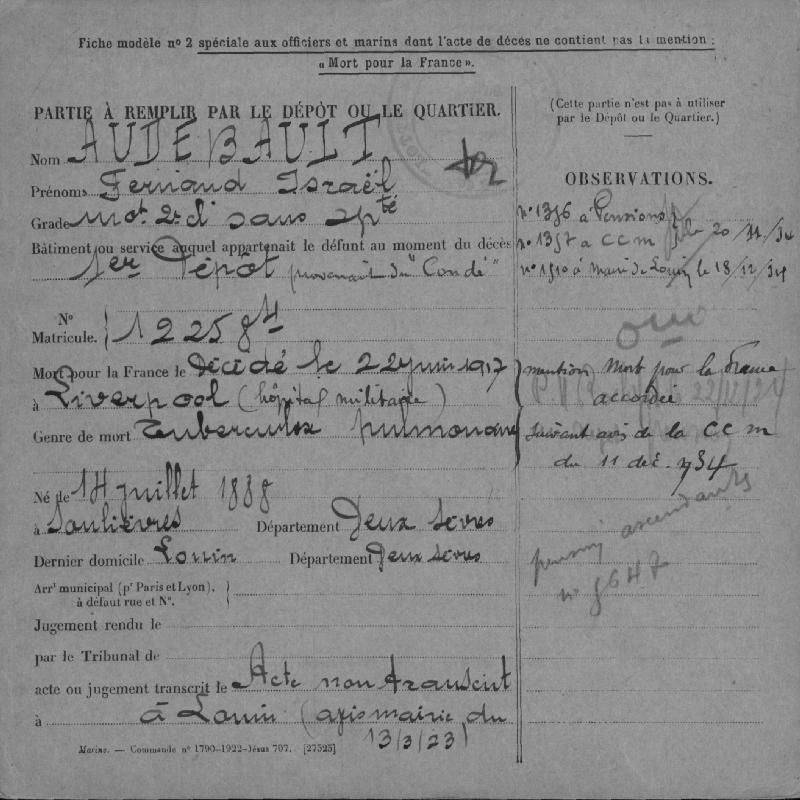 Fiche modèle n° 2 spéciale aux officiers et marins dont l'acte de décès ne contient pas la mention :
« Mort pour la France ».
PARTIE À REMPLIR PAR LE DÉPÔT OU LE QUARTIER.
Nom AUDEBAULT
Prénoms Fernand Israël
Grade mot 2e cl sans spté
Bâtiment ou service auquel appartenait le défunt au moment du décès
1er Dépôt provenait du "Condé"
N° Matricule. 12258
Mort pour la France le Décédé le 22 juin 1917
à Liverpool (hôpital militaire)
Genre de mort Tuberculose pulmonaire
Né le 14 juillet 1888
à Saulièvres Département Deux Sèvres
Dernier domicile Louin Département Deux Sèvres
Arrt municipal (pr Paris et Lyon),
à défaut rue et N°.
Jugement rendu le
par le Tribunal de
acte ou jugement transcrit le Acte non transcrit
à à Louin (avis mairie du
13/3/23)
Marine. — Commande n° 1790-1922-Jésus 707. [27525]
(Cette partie n'est pas à utiliser
par le Dépôt ou le Quartier.)
OBSERVATIONS.
n° 1396 à Pensions
n° 1397 à CCM le 20/11/34
n° 1510 à Mairie de Louin le 18/12/34
oui
mention Mort pour la France
accordée
suivant avis de la CCM
du 11 déc. 934
pension ascendants
n° 8647